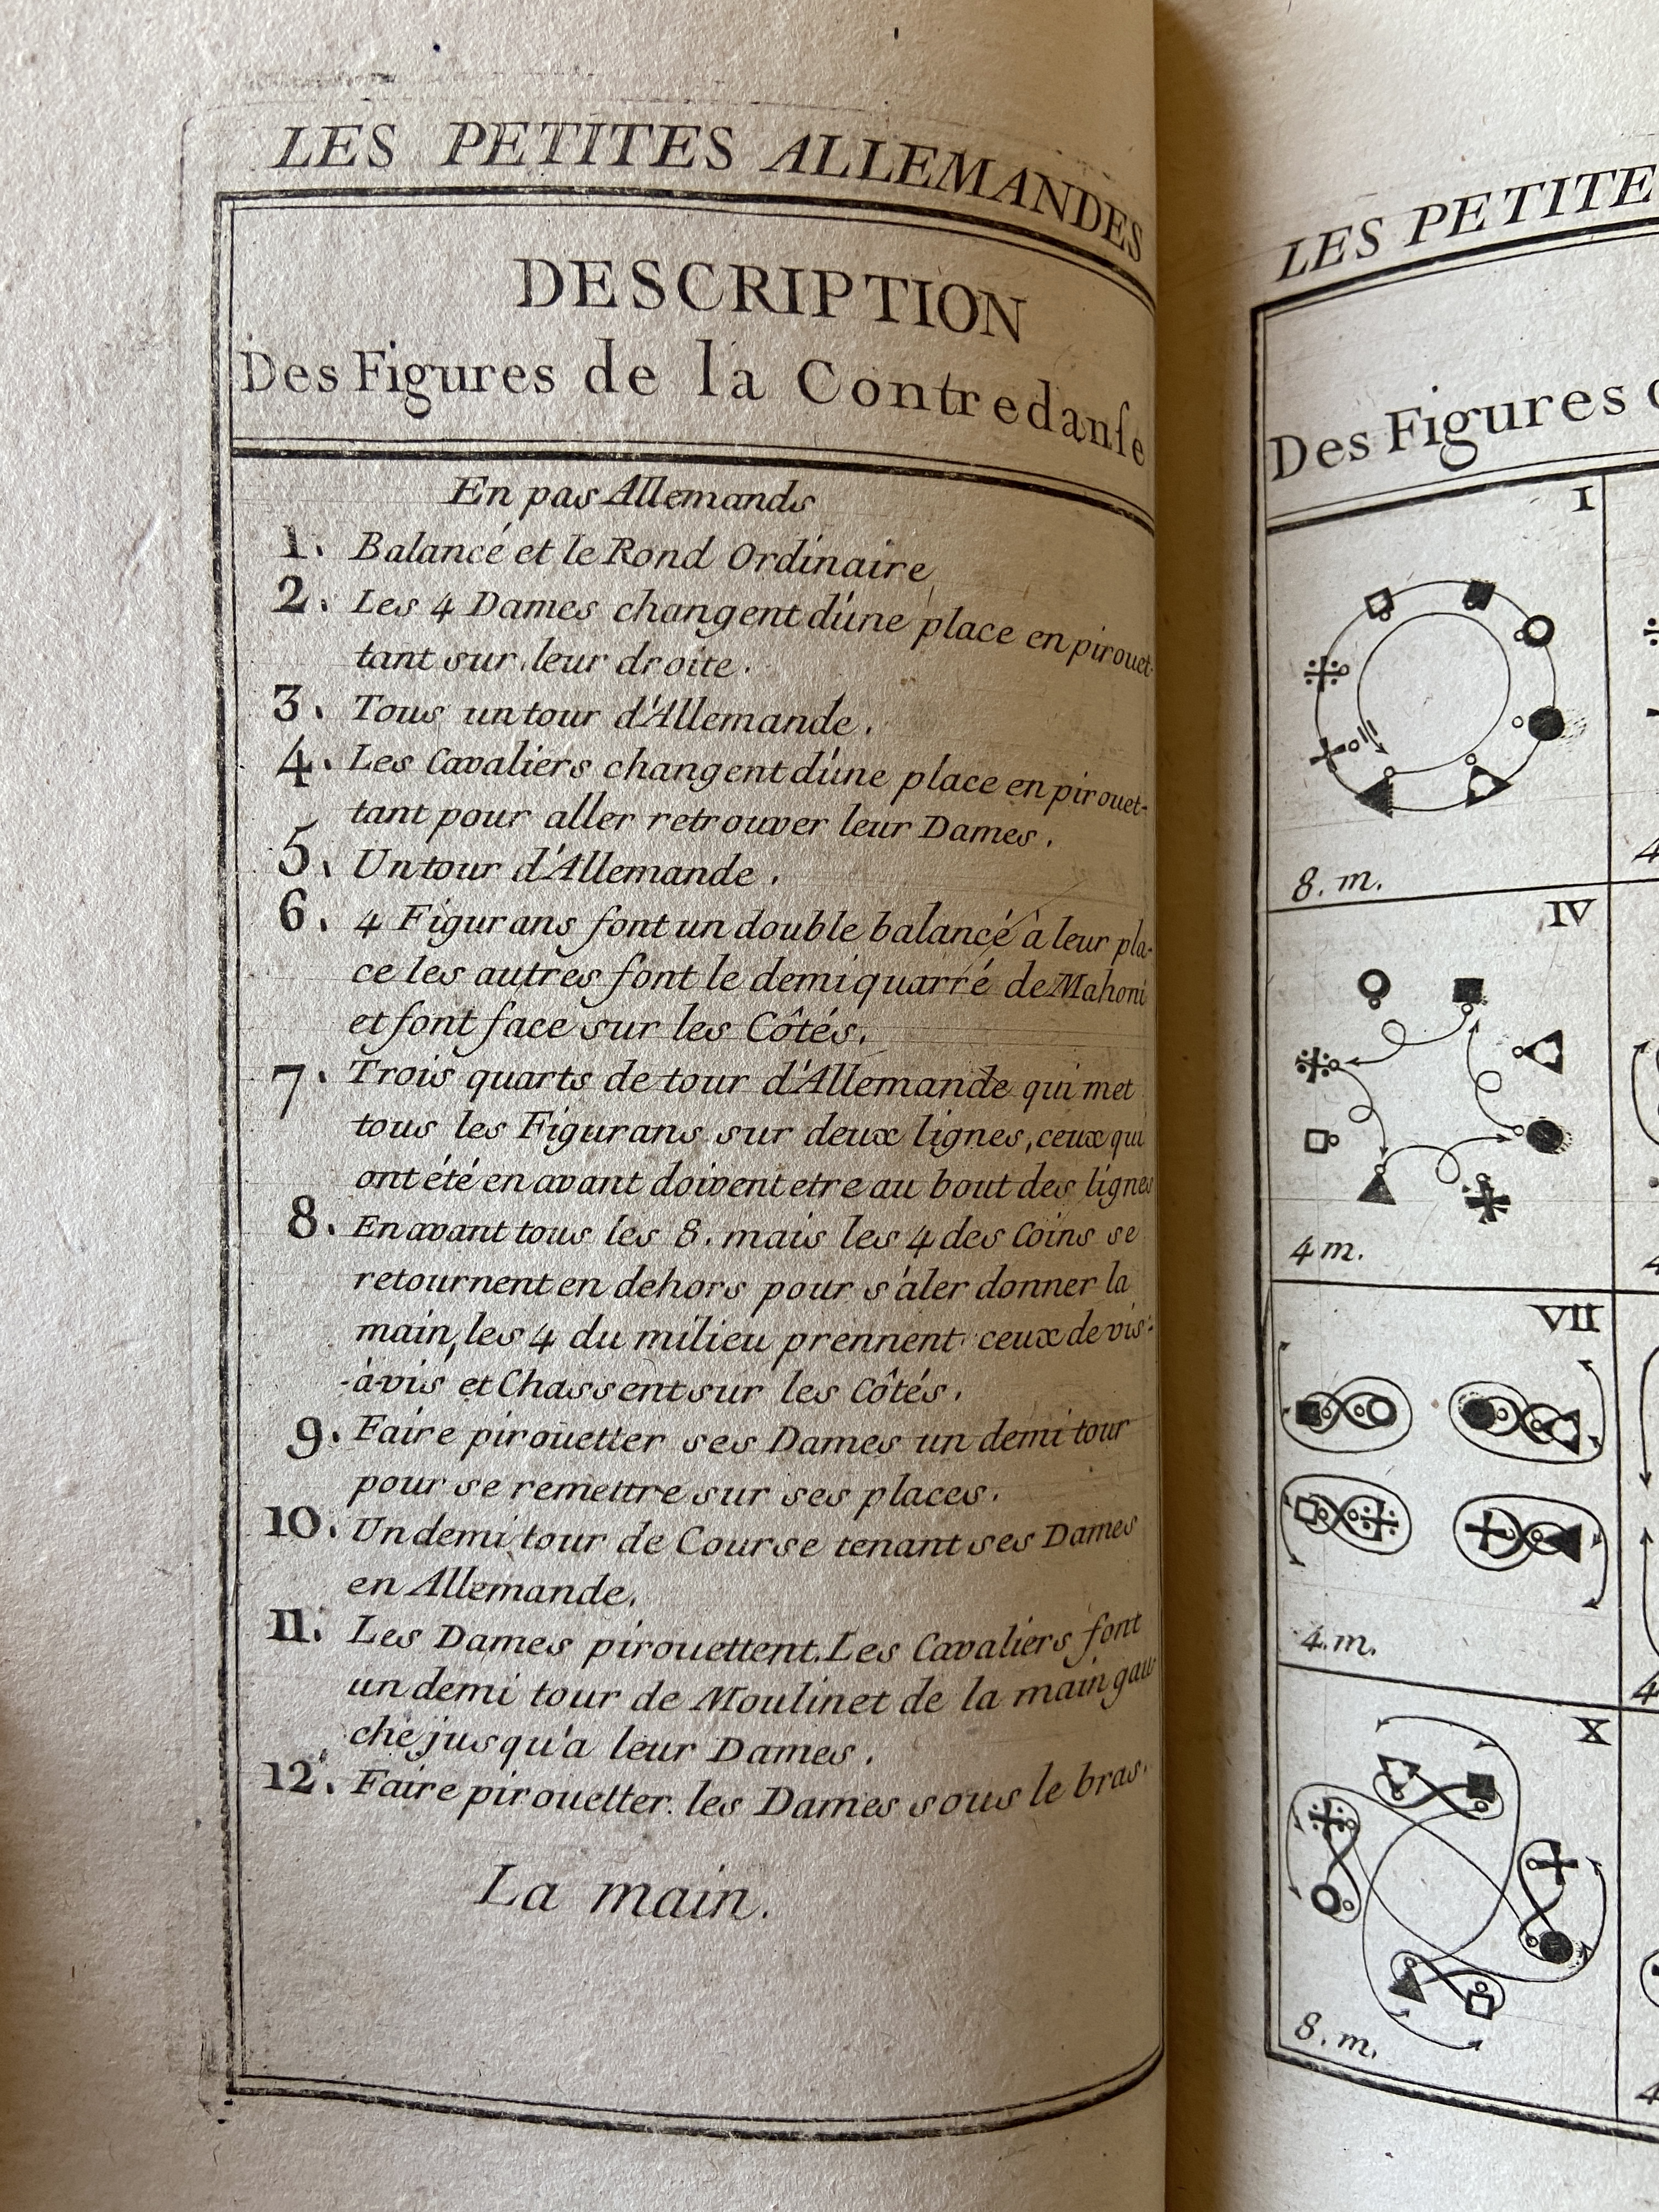 LES PETITES ALLEMANDES
DESCRIPTION
Des Figures de la Contredanſe
En pas Allemands
1. Balancé et le Rond Ordinaire
2. Les 4 Dames changent d'une place en pirouet-
tant sur leur droite.
3. Tous un tour d'Allemande.
4. Les Cavaliers changent d'une place en pirouet-
tant pour aller retrouver leur Dames.
5. Un tour d'Allemande.
6. 4 Figurans font un double balancé à leur pla-
ce les autres font le demi quarré de Mahoni
et font face sur les Côtés.
7. Trois quarts de tour d'Allemande qui met
tous les Figurans sur deux lignes, ceux qui
ont été en avant doivent etre au bout des lignes
8. En avant tous les 8. mais les 4 des Coins se
retournent en dehors pour s'aler donner la
main, les 4 du milieu prennent ceux de vis-
-à-vis et Chassent sur les Côtés.
9. Faire pirouetter ses Dames un demi tour
pour se remettre sur ses places.
10. Un demi tour de Course tenant ses Dames
en Allemande.
11. Les Dames pirouettent. Les Cavaliers font
un demi tour de Moulinet de la main gau
che jusqu'a leur Dames.
12. Faire pirouetter les Dames sous le bras.
La main.
LES PETITE
Des Figures
I
8. m.
4
IV
4 m.
4
VII
4. m.
4
X
8. m.
4